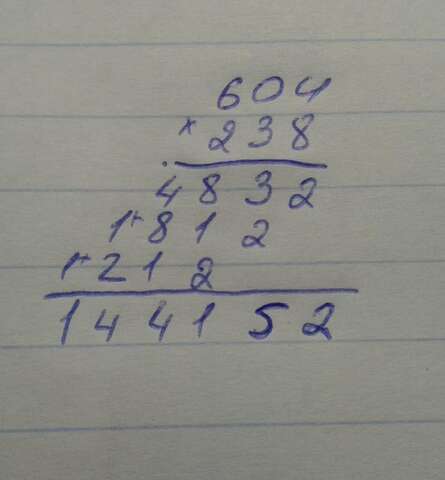 604
× 238
4832
1+812
1+212
144152